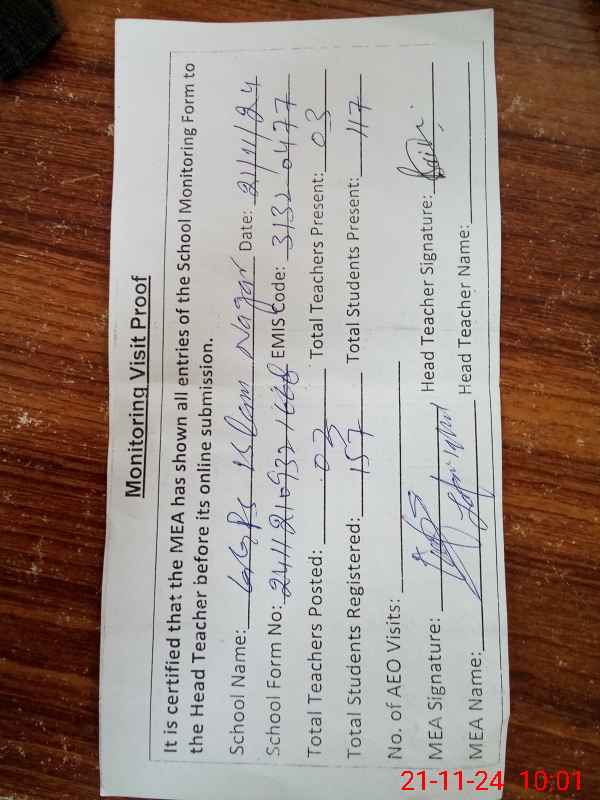 Monitoring Visit Proof
It is certified that the MEA has shown all entries of the School Monitoring Form to
the Head Teacher before its online submission.
School Name: GGPS Islam Nagar Date: 21/11/24
School Form No: EMIS Code: 31320477
Total Teachers Posted: 03 Total Teachers Present: 03
Total Students Registered: 157 Total Students Present: 117
No. of AEO Visits:
MEA Signature: Head Teacher Signature:
MEA Name: Head Teacher Name:
21-11-24 10:01